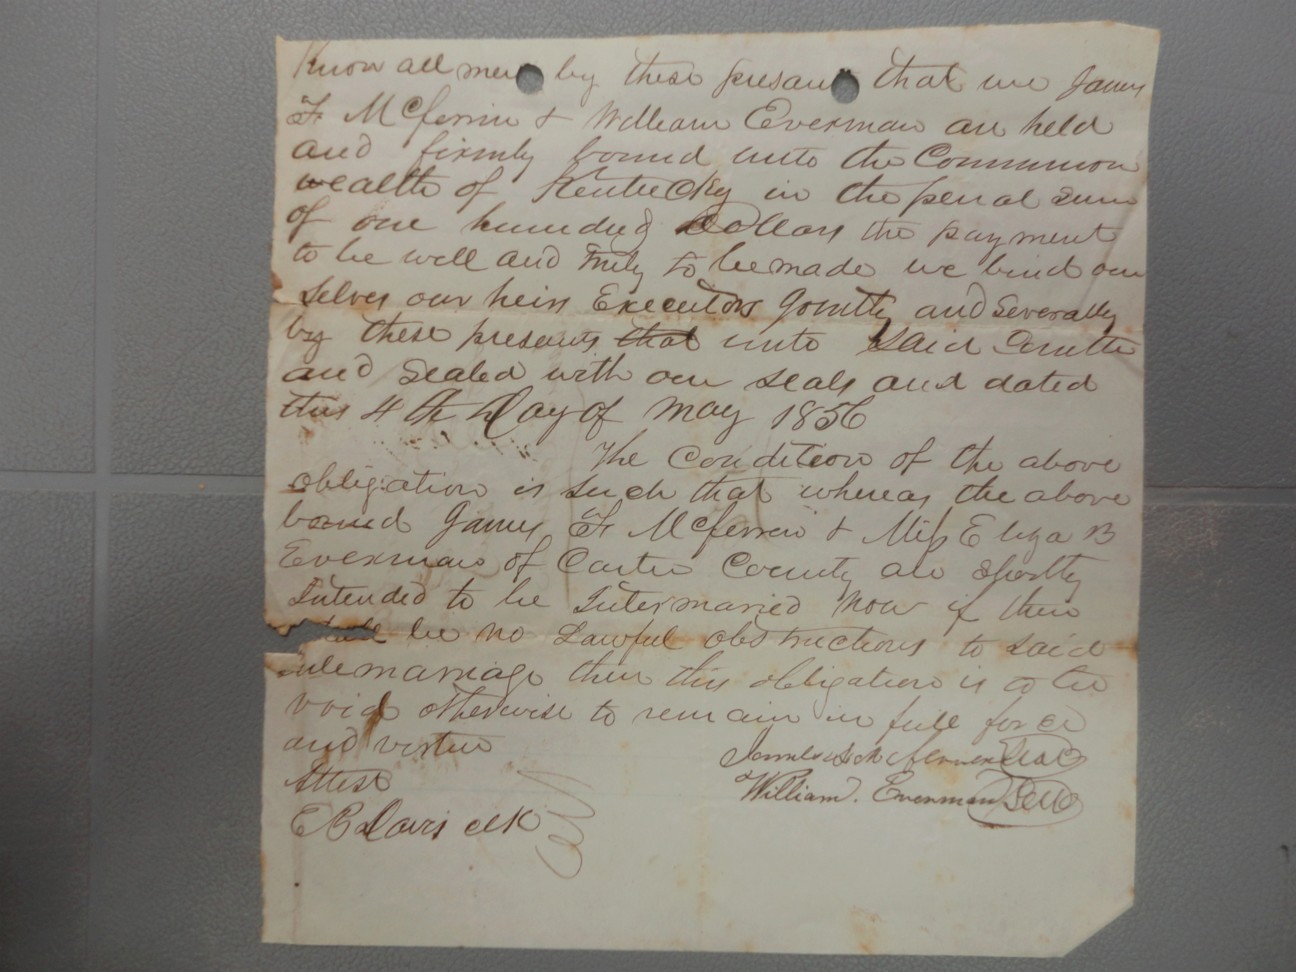 Know all men by these presan that we James
F McFerrin & William Everman are held
and firmly bound unto the Common
wealth of Kentucky in the penal sum
of one hundred Dollars the payment
to be well and truly to be made we bind our
selves our heirs Executors Jointly and Severally
by these presents that unto said
and sealed with our seals and dated
this 4th Day of May 1856
The Condition of the above
obligation is such that whereas the above
bound James F McFerrin & Miss Eliza B
Everman of Carter County are shortly
Intended to be Intermarried Now if there
shall be no Lawful obstructions to said
marriage then this obligation is to be
void otherwise to remain in full force
and virtue
James F McFerren Seal
Attest
William. Everman Seal
E B Davis clk